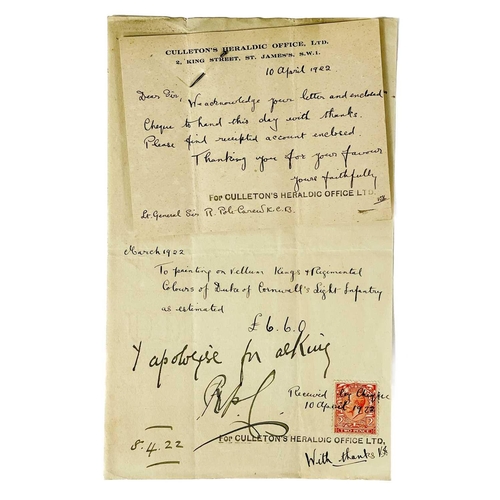 CULLETON'S HERALDIC OFFICE, LTD.
2, KING STREET, ST. JAMES'S, S.W.1.
10 April 1922.
Dear Sir, We acknowledge your letter and enclosed
Cheque to hand this day with thanks.
Please find receipted account enclosed.
Thanking you for your favour
yours faithfully
FOR CULLETON'S HERALDIC OFFICE LTD.
Lt. General Sir R. Pole Carew K.C.B.
March 1922
To painting on Vellum Kings & Regimental
Colours of Duke of Cornwall's Light Infantry
as estimated
£6.6.0
I apologise for asking
RPC
Received by Cheque
10 April 1922
TWO PENCE
8.4.22
FOR CULLETON'S HERALDIC OFFICE LTD.
With thanks